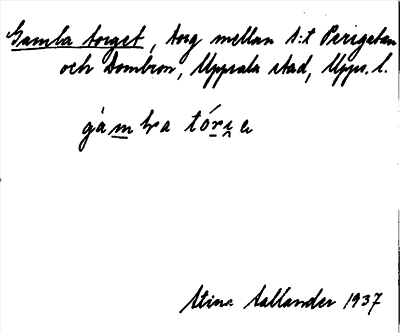 Gamla torget, torg mellan S:t Persgatan
och Dombron, Uppsala stad, Upps. l.
gàmla tórıe
Stina Sallander 1937